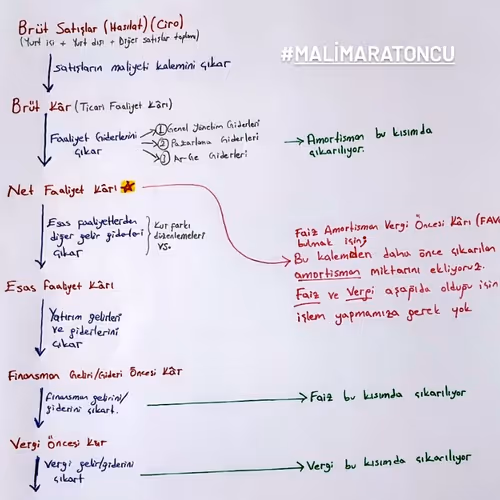 Brüt Satışlar (Hasılat) (Ciro)
(Yurt içi + Yurt dışı + Diğer satışlar toplamı)
#MALİMARATONCU
satışların maliyeti kalemini çıkar
Brüt Kâr (Ticari Faaliyet Kârı)
Faaliyet Giderlerini
çıkar
1 Genel Yönetim Giderleri
2 Pazarlama Giderleri
3 Ar-Ge Giderleri
Amortisman bu kısımda
çıkarılıyor.
Net Faaliyet Kârı
Esas faaliyetlerden
diğer gelir giderleri
çıkar
Kur farkı
düzenlemeleri
vs.
Faiz Amortisman Vergi Öncesi Kârı (FAV
bulmak için;
Bu kalemden daha önce çıkarılan
amortisman miktarını ekliyoruz.
Faiz ve Vergi aşağıda olduğu için
işlem yapmamıza gerek yok
Esas Faaliyet Kârı
Yatırım gelirleri
ve giderlerini
çıkar
Finansman Geliri/Gideri Öncesi Kâr
finansman gelirini/
giderini çıkart.
Faiz bu kısımda çıkarılıyor
Vergi Öncesi Kur
Vergi gelir/giderini
çıkart
Vergi bu kısımda çıkarılıyor